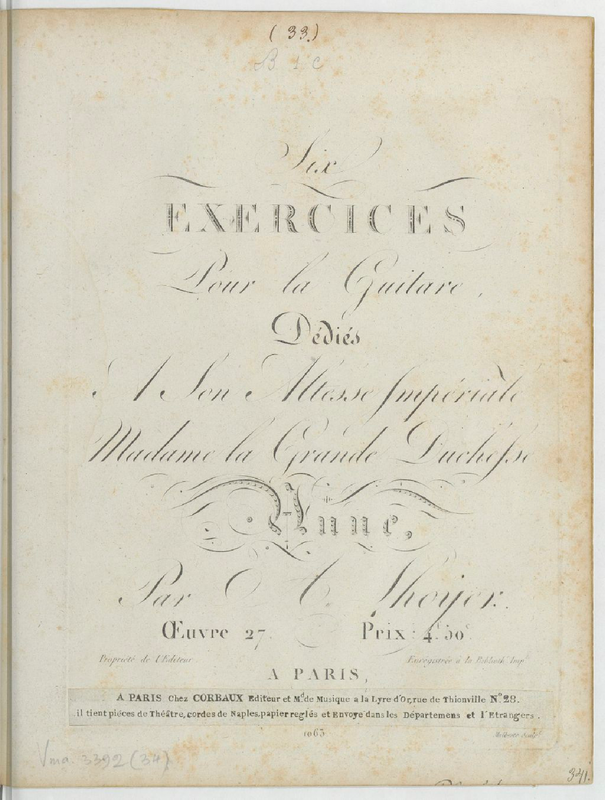 (33.)
B 1 c
Six
EXERCICES
Pour la Guitare,
Dédiés
A Son Altesse Impériale
Madame la Grande Duchesse
Anne,
Par A. Lhoyer.
Œuvre 27. Prix: 4ᶠ 50ᶜ
Propriété de l'Editeur. Enregistrée à la Biblioth. Imp.
A PARIS,
A PARIS Chez CORBAUX Editeur et Mᵈ de Musique a la Lyre d'Or, rue de Thionville Nº 28.
il tient pièces de Théâtre, cordes de Naples, papier reglés et Envoye dans les Départemens et l'Etrangers.
1063
Vma. 3392 (34)
341.